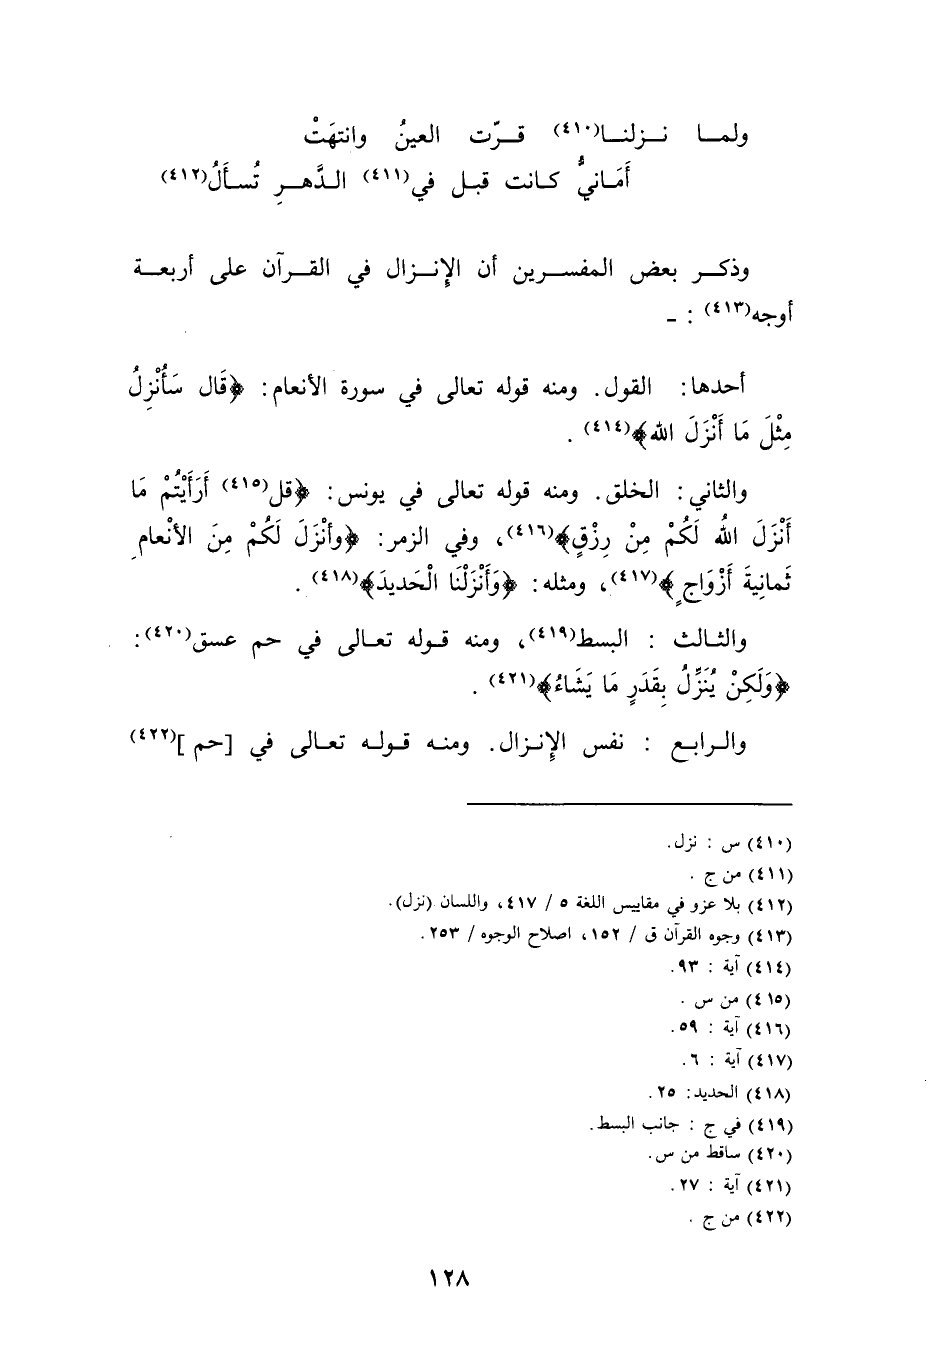 ولمـا نـزلنـا(٤١٠) قـرّت العينُ وانتهَتْ
أَمَـانيُّ كـانت قبـل في(٤١١) الـدَّهـرِ تُسـأَلُ(٤١٢)
وذكـر بعض المفسـرين أن الإنـزال في القـرآن على أربعـة
أوجه(٤١٣) : ـ
أحدها: القول. ومنه قوله تعالى في سورة الأنعام: ﴿قَال سَأُنْزِلُ
مِثْلَ مَا أَنْزَلَ الله﴾(٤١٤) .
والثاني: الخلق. ومنه قوله تعالى في يونس: ﴿قل(٤١٥) أَرَأَيْتُمْ مَا
أَنْزَلَ اللهُ لَكُمْ مِنْ رِزْقٍ﴾(٤١٦)، وفي الزمر: ﴿وأنْزَلَ لَكُمْ مِنَ الأنْعامِ
ثَمانِيةَ أَزْوَاجٍ﴾(٤١٧)، ومثله: ﴿وَأَنْزَلْنَا الْحَديدَ﴾(٤١٨) .
والثـالث : البسط(٤١٩)، ومنه قـوله تعـالى في حم عسق(٤٢٠):
﴿وَلَكِنْ يُنَزِّلُ بِقَدَرٍ مَا يَشَاءُ﴾(٤٢١) .
والـرابـع : نفس الإنـزال. ومنـه قـولـه تعـالى في [حم ](٤٢٢)
(٤١٠) س : نزل.
(٤١١) من ج .
(٤١٢) بلا عزو في مقاييس اللغة ٥ / ٤١٧، واللسان (نزل).
(٤١٣) وجوه القرآن ق / ١٥٢، اصلاح الوجوه / ٢٥٣.
(٤١٤) آية : ٩٣.
(٤١٥) من س .
(٤١٦) آية : ٥٩.
(٤١٧) آية : ٦.
(٤١٨) الحديد: ٢٥.
(٤١٩) في ج : جانب البسط.
(٤٢٠) ساقط من س.
(٤٢١) آية : ٢٧.
(٤٢٢) من ج .
١٢٨